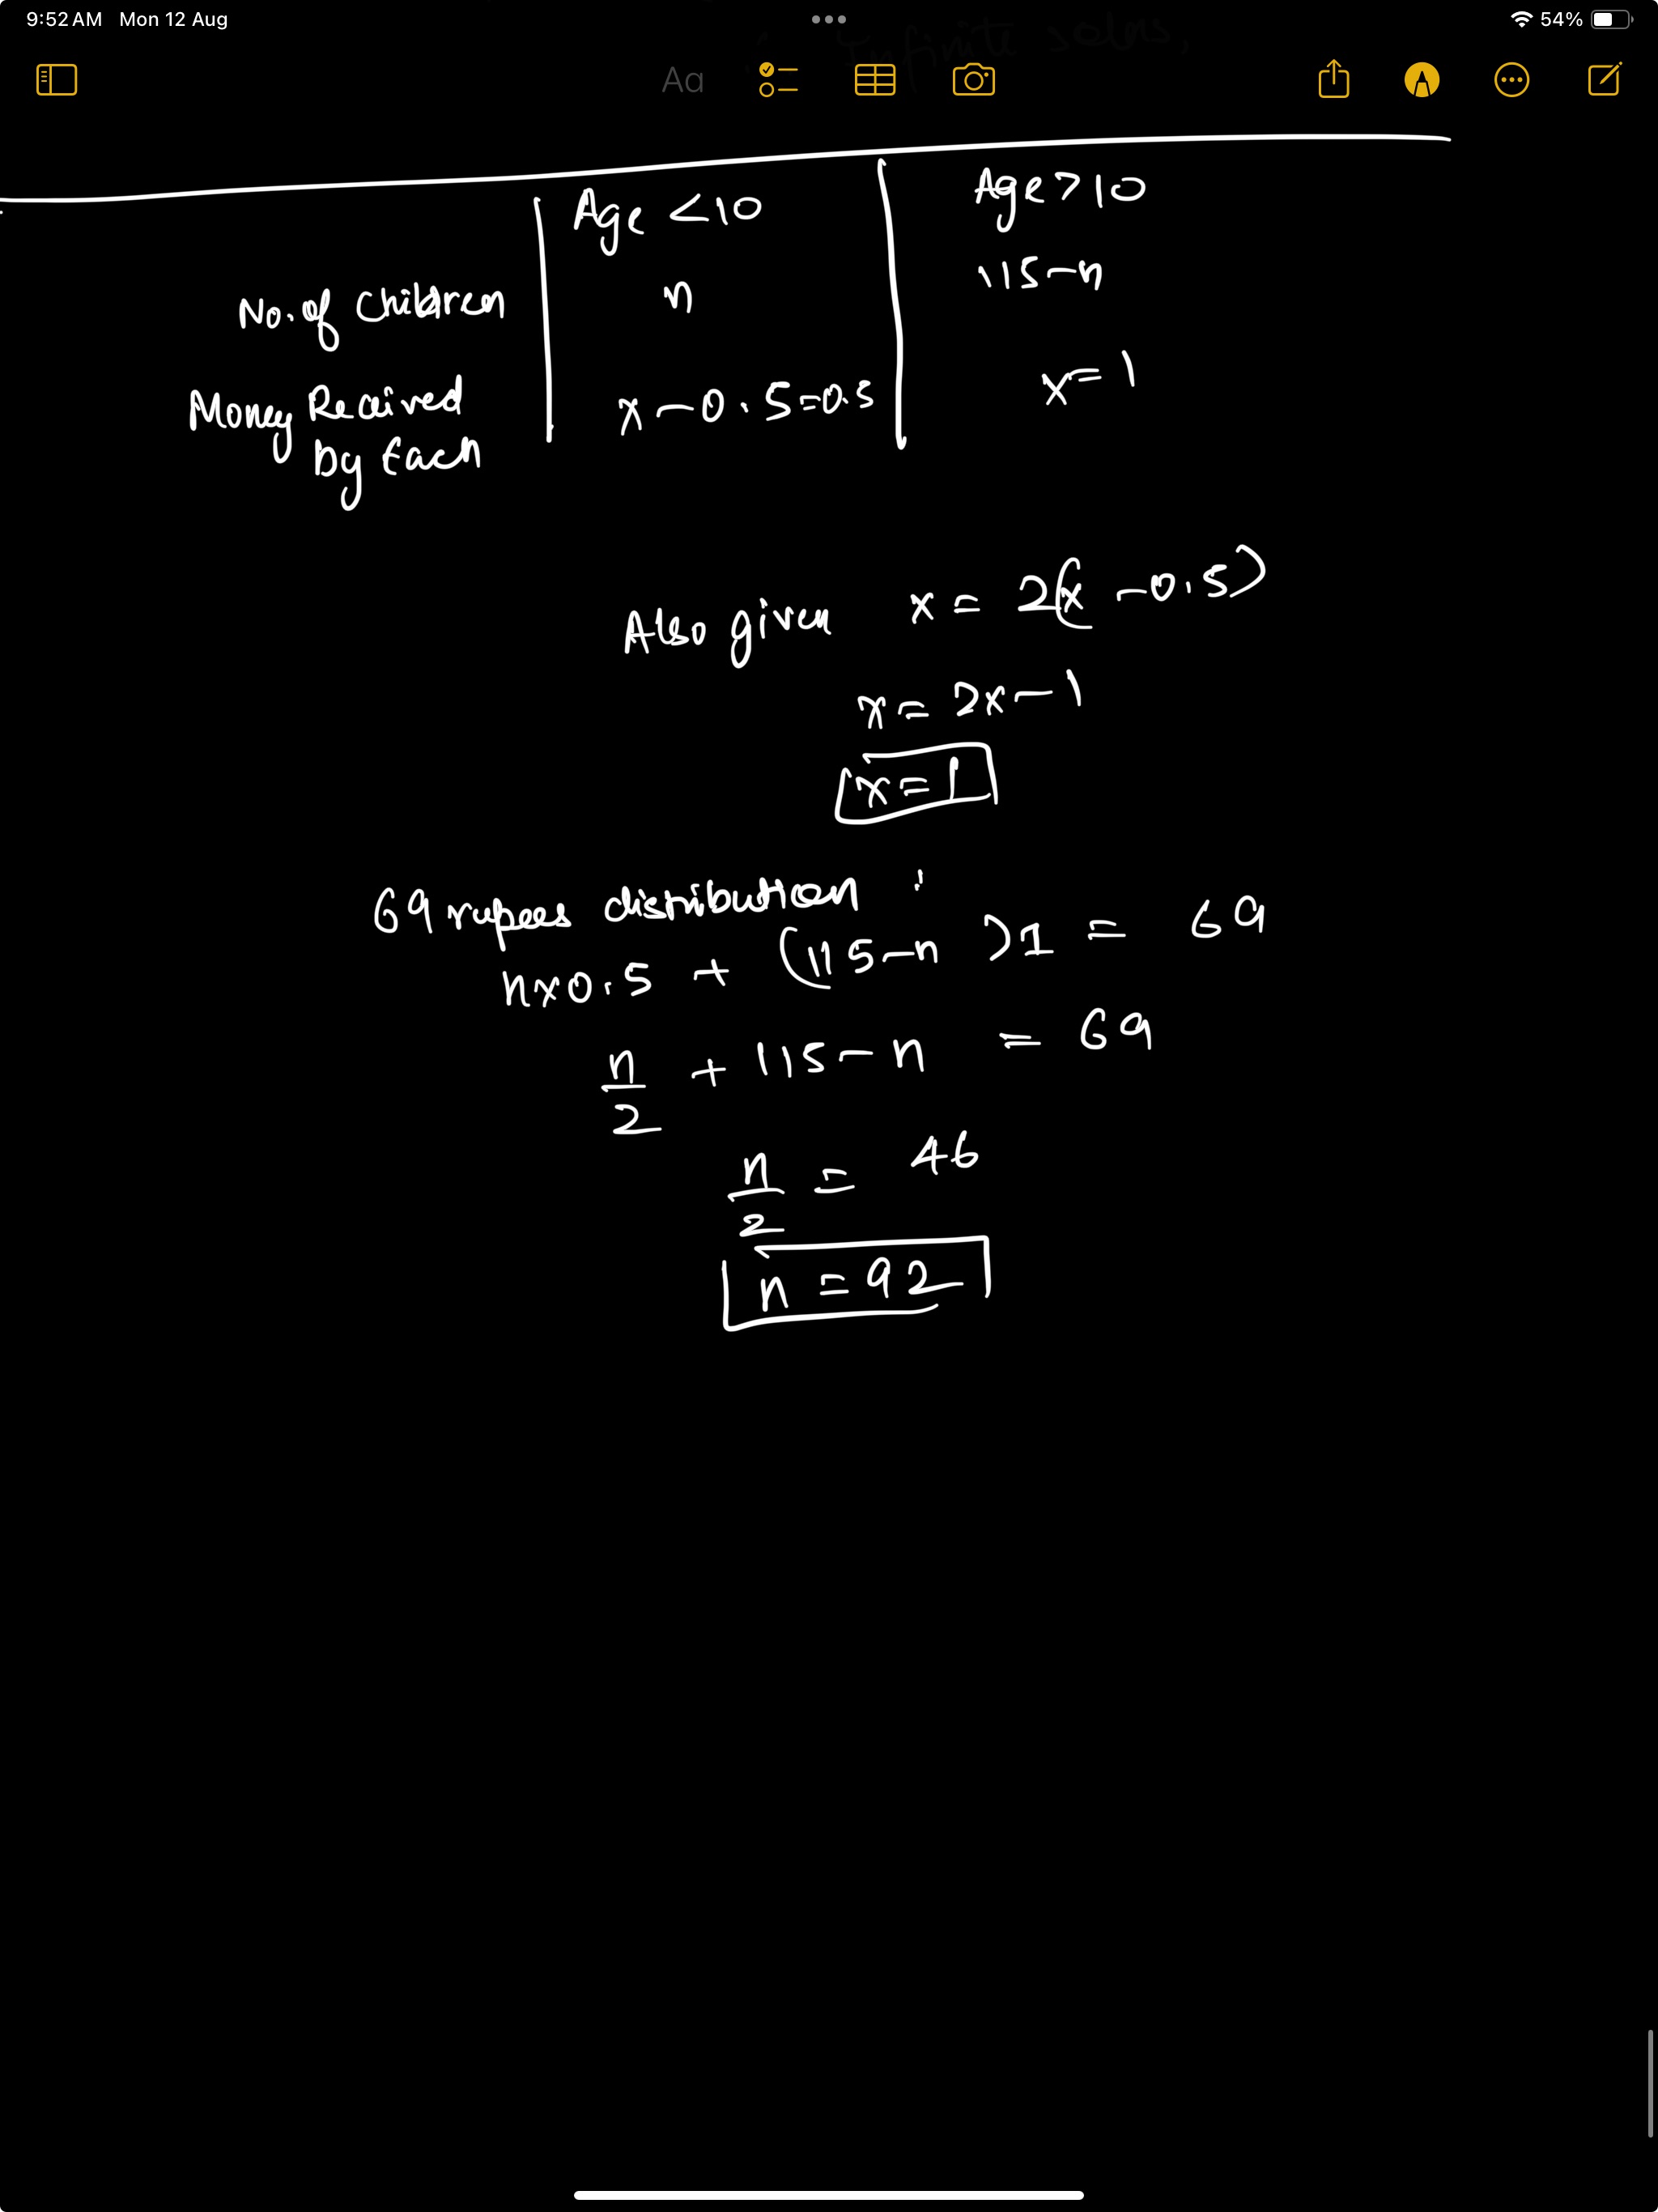 9:52 AM Mon 12 Aug
54%
Infinite solns,
Aa
Age <10
Age >10
No. of Children
n
115-n
Money Received
by Each
x-0.5=0.5
x=1
Also given x = 2(x -0.5)
x = 2x-1
x=1
69 rupees distribution :
n×0.5 + (115-n )1 = 69
n/2 + 115-n = 69
n/2 = 46
n = 92